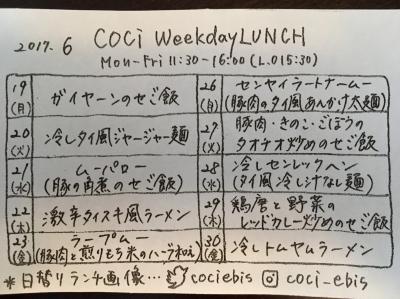 2017.6 COCi WeekdayLUNCH
Mon-Fri 11:30-16:00 (L.O15:30)
19(月) ガイヤーンのせご飯
20(火) 冷しタイ風ジャージャー麺
21(水) ムーパロー
(豚の角煮のせご飯)
22(木) 激辛タイスキ風ラーメン
23(金) ラープムー
(豚肉と煎りもち米のハーブ和え)
26(月) センヤイラートナームー
(豚肉のタイ風あんかけ太麺)
27(火) 豚肉・きのこ・ごぼうの
タオチオ炒めのせご飯
28(水) 冷しセンレックヘン
(タイ風冷し汁なし麺)
29(木) 鶏唐と野菜の
レッドカレー炒めのせご飯
30(金) 冷しトムヤムラーメン
*日替りランチ画像… cociebis coci_ebis